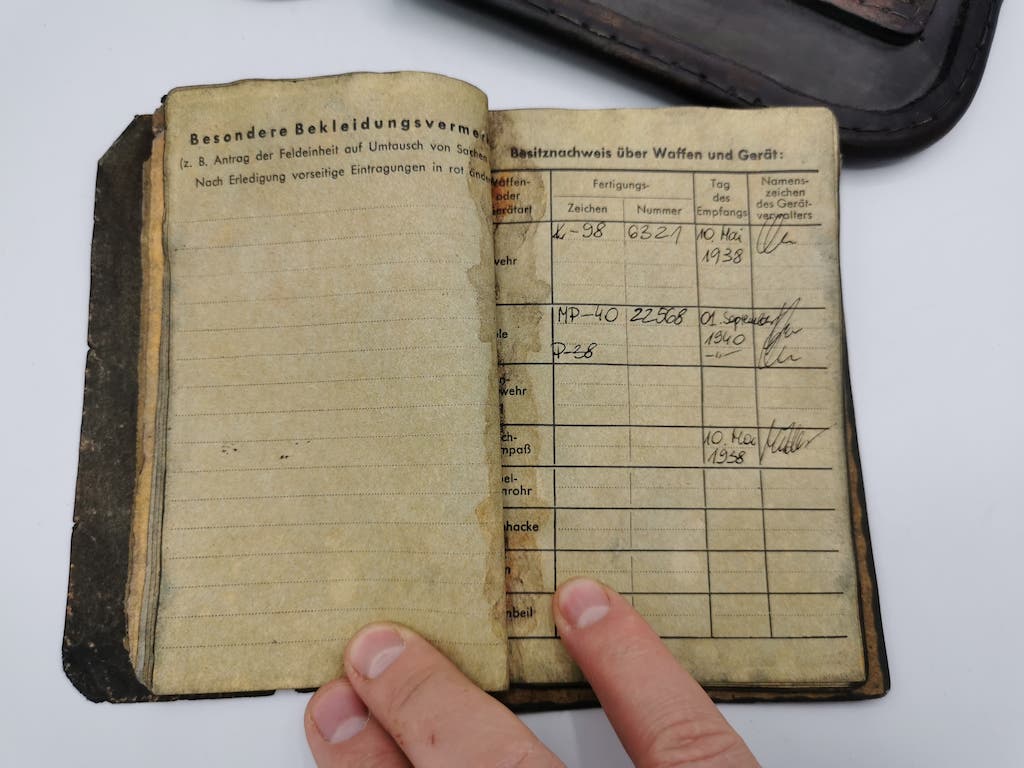 Besondere Bekleidungsverme
(z. B. Antrag der Feldeinheit auf Umtausch von Sachen
Nach Erledigung vorseitige Eintragungen in rot änd
Besitznachweis über Waffen und Gerät:
Waffen-
oder
Gerätart
Fertigungs-
Zeichen
Nummer
Tag
des
Empfangs
Namens-
zeichen
des Gerät-
verwalters
ehr
K-98 6321 10. Mai
1938
le
MP-40 22568 01. September
1940
P-38
wehr
ch-
mpaß
10. Mai
1938
el-
nrohr
hacke
n
nbeil